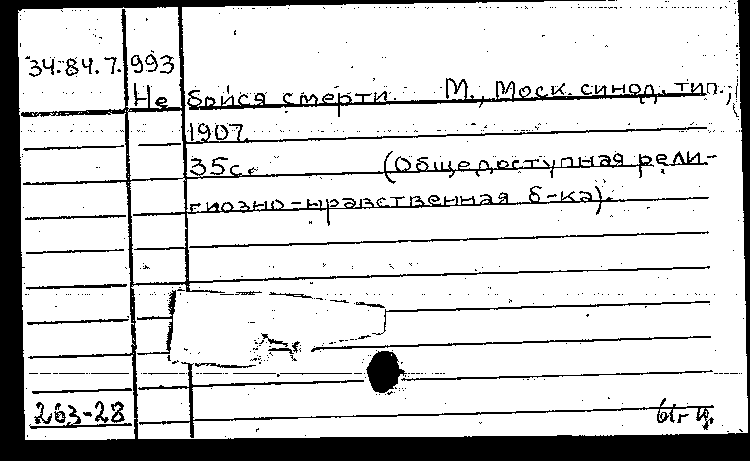 34.84.7.993
Не бойся смерти. М., Моск. синод. тип.,
1907.
35с. (Общедоступная рели-
гиозно-нравственная б-ка).
263-28